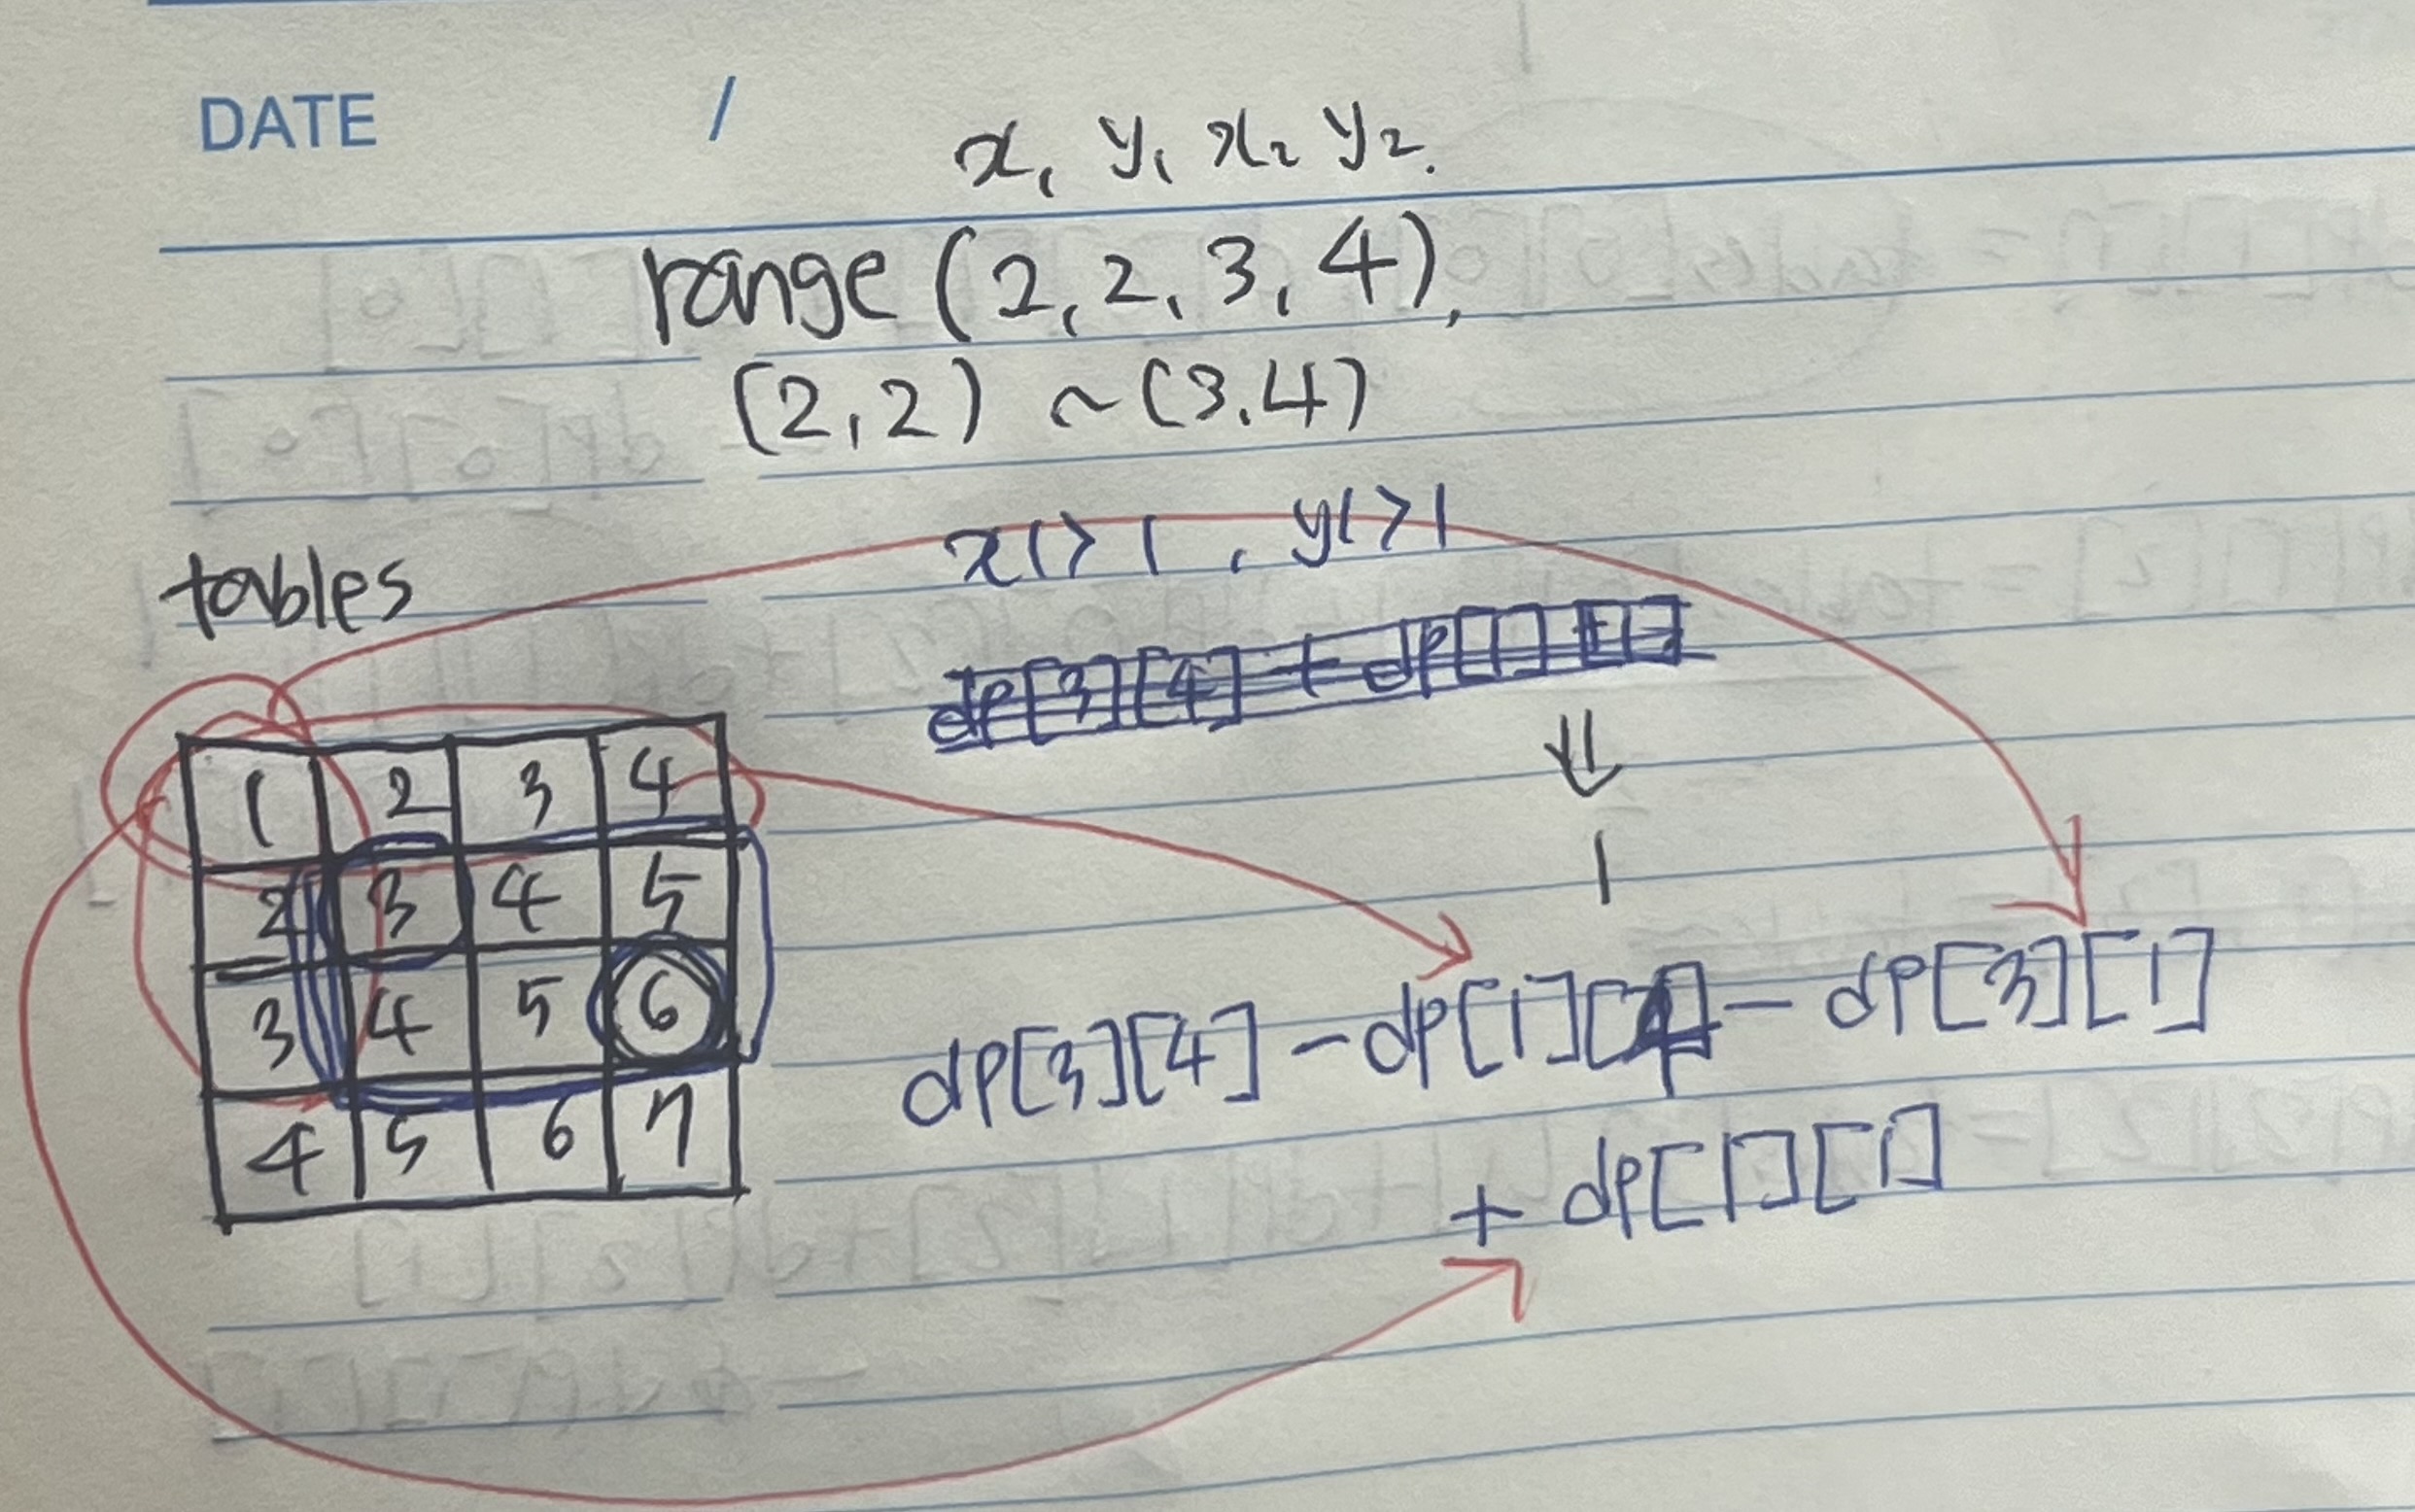 DATE /
x1 y1 x2 y2.
range (2, 2, 3, 4),
(2,2) ~ (3.4)
x1>1 , y1>1
tables
dp[3][4] + dp[1]
⇓
1 2 3 4
2 3 4 5
3 4 5 6
4 5 6 7
dp[3][4] - dp[1][4] - dp[3][1]
+ dp[1][1]